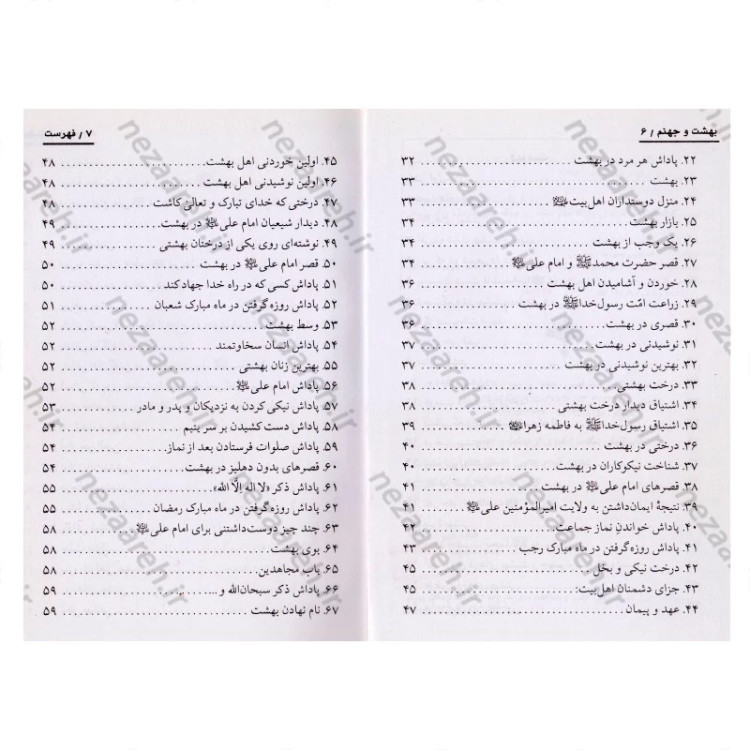 بهشت و جهنم / ۶
۲۲. پاداش هر مرد در بهشت ۳۲
۲۳. بهشت ۳۳
۲۴. منزل دوستداران اهل‌بیت ﷺ ۳۳
۲۵. بازار بهشت ۳۴
۲۶. یک وجب از بهشت ۳۴
۲۷. قصر حضرت محمد ﷺ و امام علی ۳۴
۲۸. خوردن و آشامیدن اهل بهشت ۳۶
۲۹. زراعت امّت رسول‌خدا ﷺ در بهشت ۳۶
۳۰. قصری در بهشت ۳۶
۳۱. نوشیدنی در بهشت ۳۷
۳۲. بهترین نوشیدنی در بهشت ۳۷
۳۳. درخت بهشتی ۳۸
۳۴. اشتیاق دیدار درخت بهشتی ۳۸
۳۵. اشتیاق رسول‌خدا ﷺ به فاطمه زهرا ۳۹
۳۶. درختی در بهشت ۴۰
۳۷. شناخت نیکوکاران در بهشت ۴۰
۳۸. قصرهای امام علی در بهشت ۴۱
۳۹. نتیجهٔ ایمان‌داشتن به ولایت امیرالمؤمنین علی ۴۱
۴۰. پاداش خواندنِ نماز جماعت ۴۲
۴۱. پاداش روزه‌گرفتن در ماه مبارک رجب ۴۳
۴۲. درخت نیکی و بخل ۴۵
۴۳. جزای دشمنان اهل‌بیت: ۴۵
۴۴. عهد و پیمان ۴۷
۷ / فهرست
۴۵. اولین خوردنی اهل بهشت ۴۸
۴۶. اولین نوشیدنی اهل بهشت ۴۸
۴۷. درختی که خدای تبارک و تعالیٰ کاشت ۴۸
۴۸. دیدار شیعیان امام علی در بهشت ۴۹
۴۹. نوشته‌ای روی یکی از درختان بهشتی ۴۹
۵۰. قصر امام علی در بهشت ۵۰
۵۱. پاداش کسی که در راه خدا جهاد کند ۵۰
۵۲. پاداش روزه‌گرفتن در ماه مبارک شعبان ۵۱
۵۳. وسط بهشت ۵۲
۵۴. پاداش انسان سخاوتمند ۵۲
۵۵. بهترین زنان بهشتی ۵۲
۵۶. پاداش امام علی ۵۲
۵۷. پاداش نیکی کردن به نزدیکان و پدر و مادر ۵۳
۵۸. پاداش دست کشیدن بر سر یتیم ۵۴
۵۹. پاداش صلوات فرستادن بعد از نماز ۵۴
۶۰. قصرهای بدون دهلیز در بهشت ۵۴
۶۱. پاداش ذکر «لا اله إلّا الله» ۵۵
۶۲. پاداش روزه‌گرفتن در ماه مبارک رمضان ۵۵
۶۳. چند چیز دوست‌داشتنی برای امام علی ۵۸
۶۴. بوی بهشت ۵۸
۶۵. باب مجاهدین ۵۸
۶۶. پاداش ذکر سبحان‌الله و... ۵۹
۶۷. نام نهادن بهشت ۵۹
nezaareh.ir